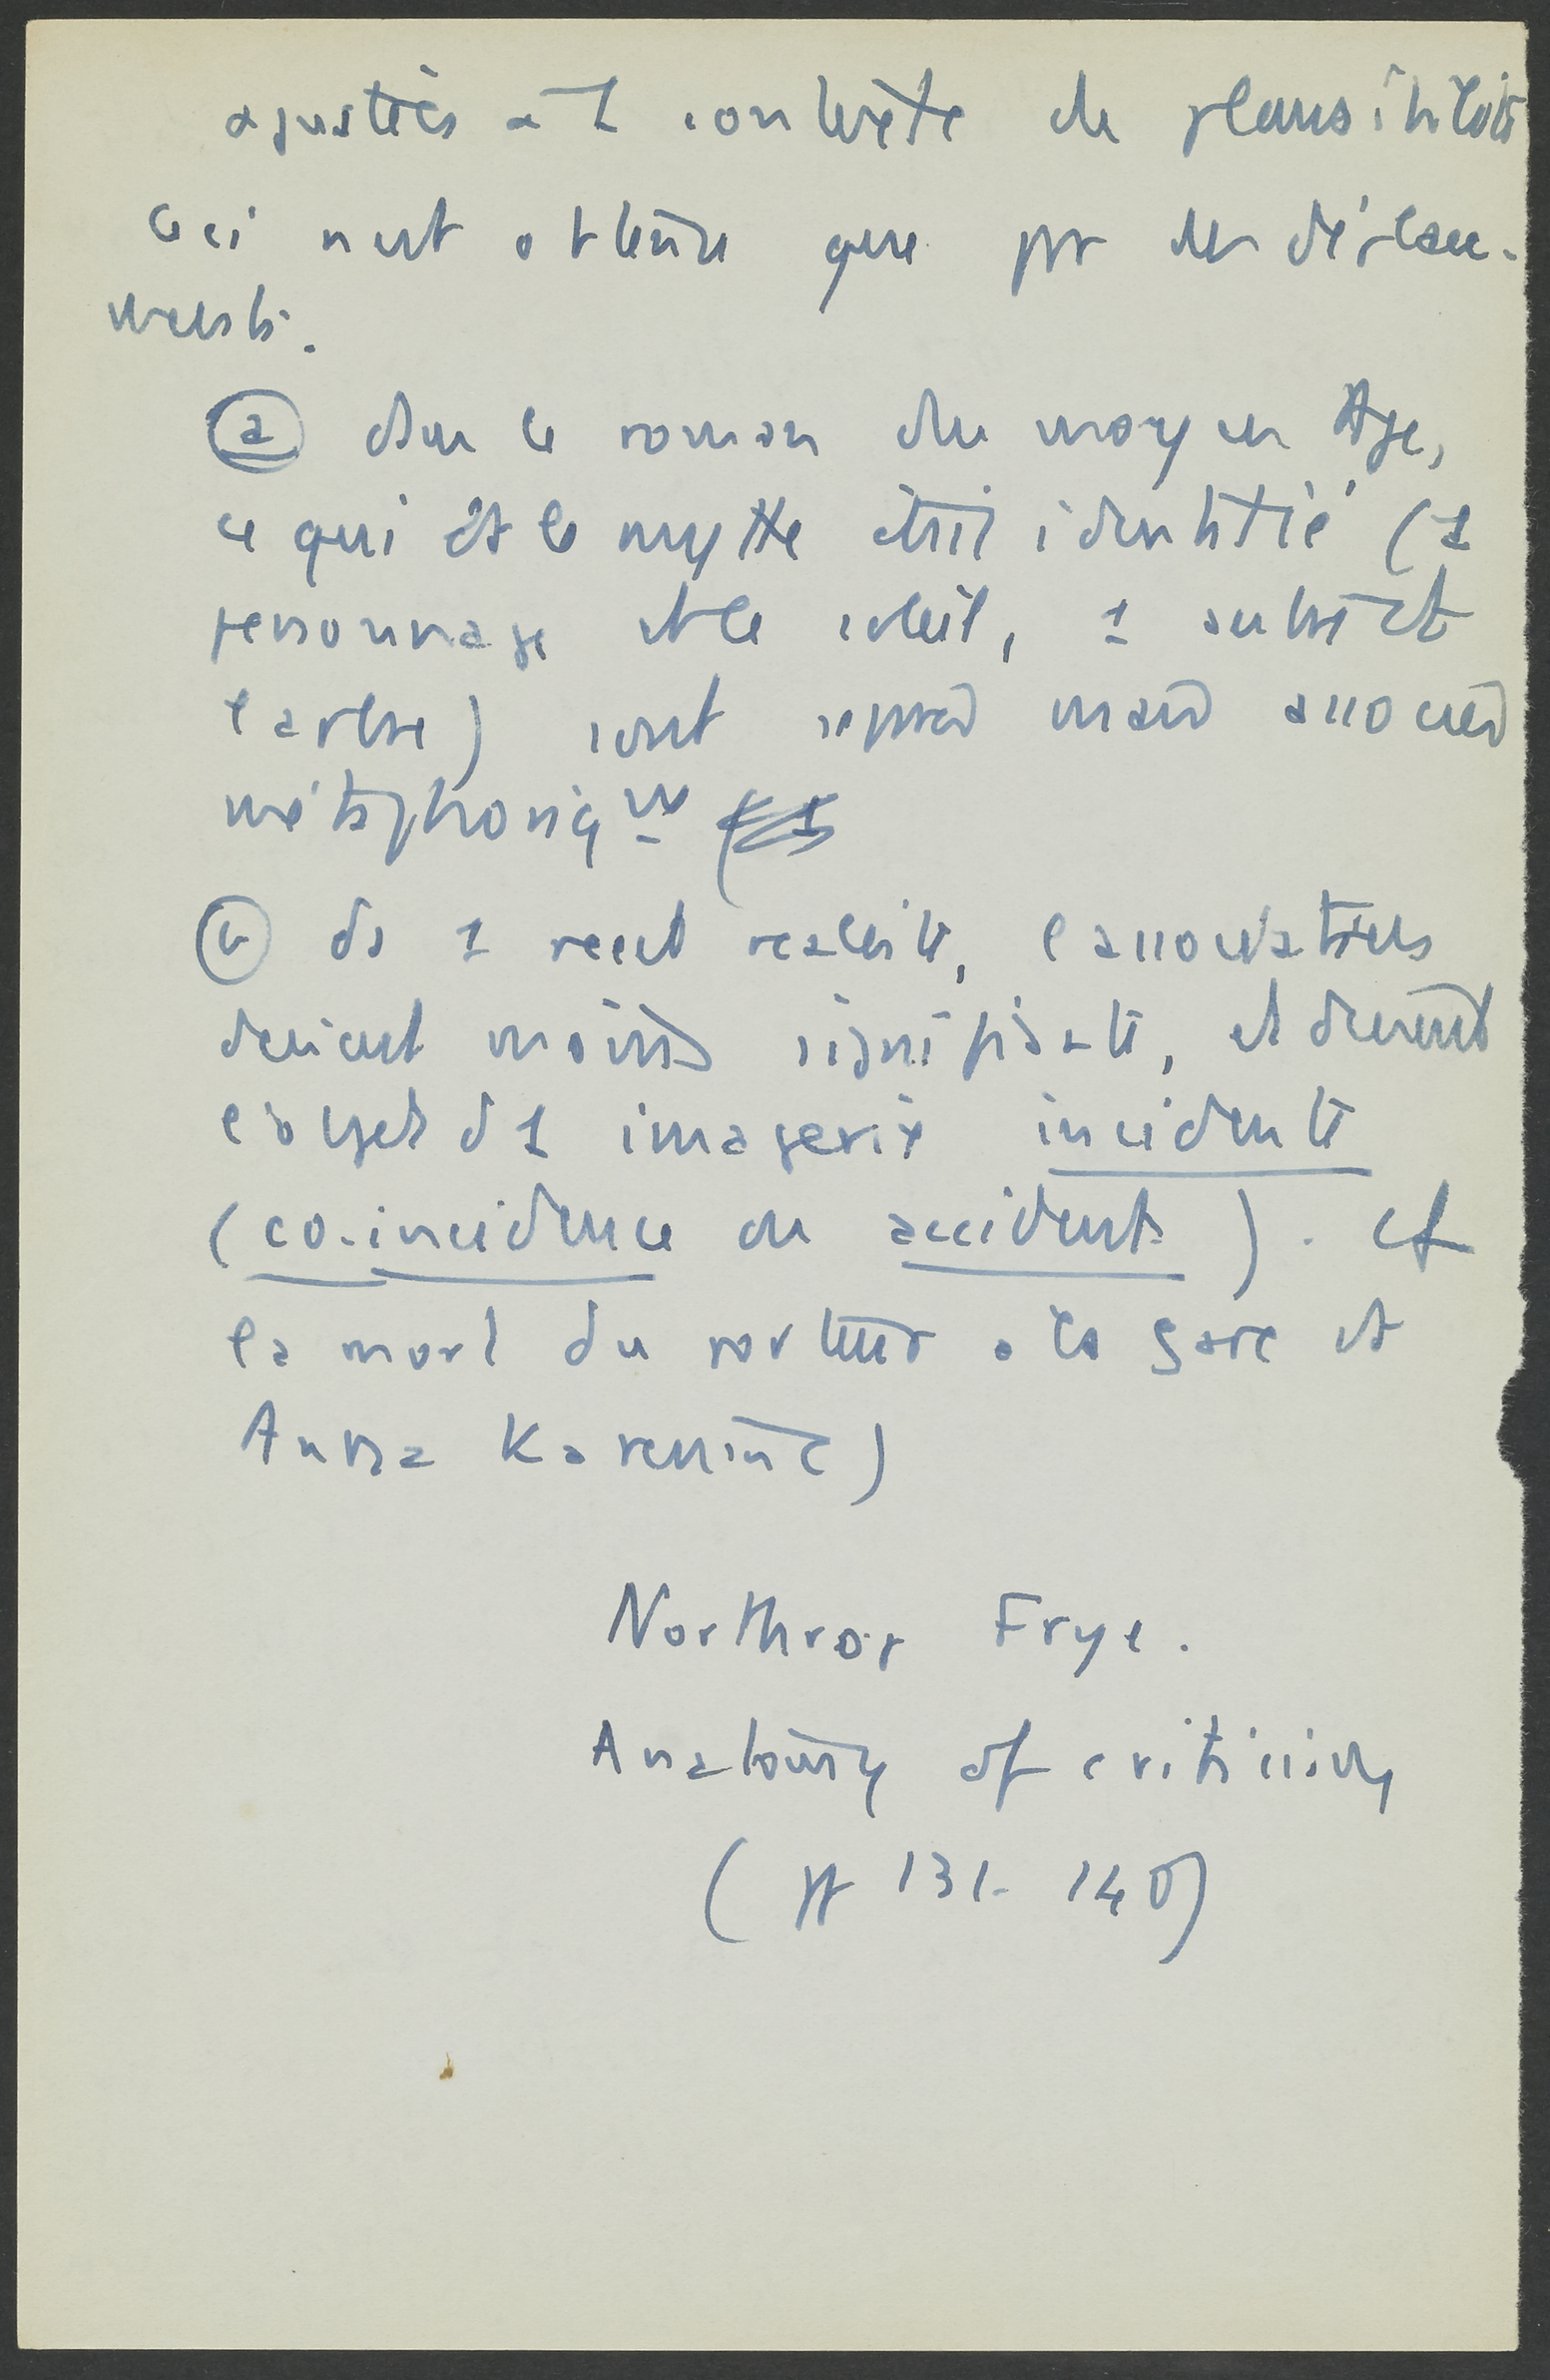 ajustées à 1 contexte de plausibilité
ceci n'est obtenu que par des déplace-
ments.
(a) dans le roman du moyen Age,
ce qui ds le mythe était identifié (1
personnage et le soleil, 1 autre et
l'arbre) sont séparés mais associés
métaphoriqut
(b) ds 1 récit réaliste, l'association
devient moins signifiante, et devient
l'objet d'1 imagerie incidente
(co-incidence ou accident). cf
la mort du porteur à la gare et
Anna Karenine)
Northrop Frye.
Anatomy of criticism
(pp 131-140)